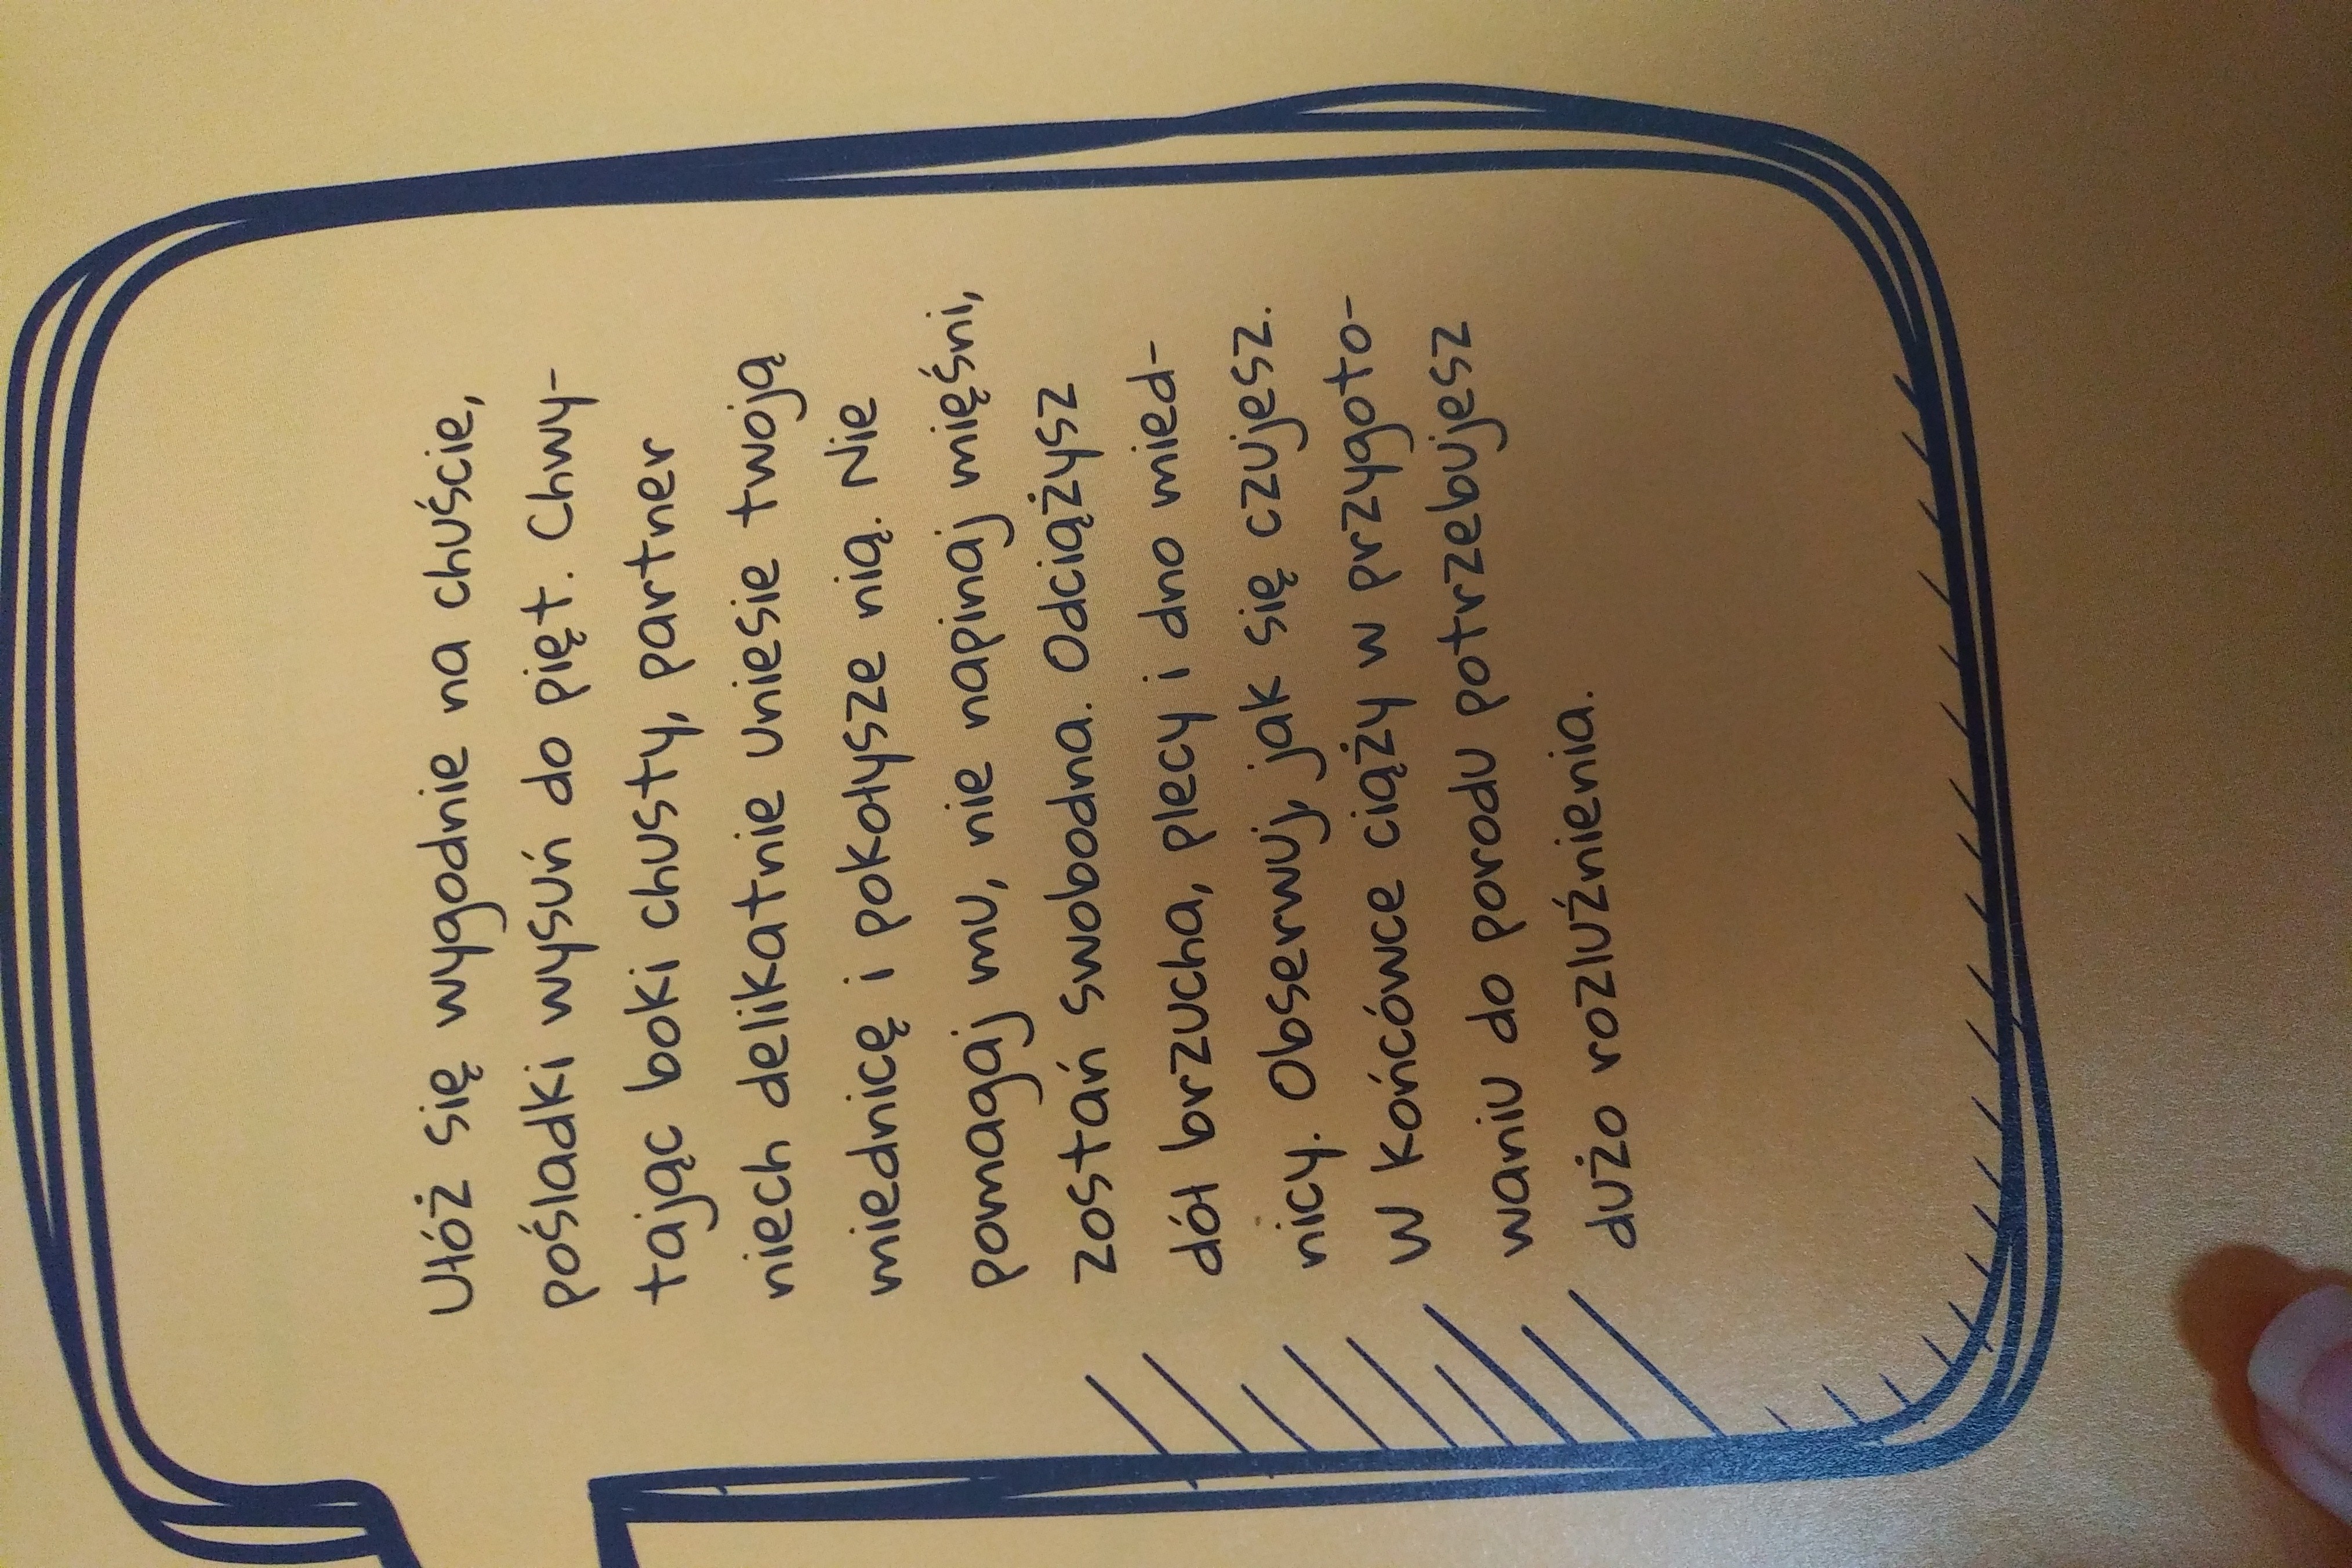 Ułóż się wygodnie na chuście,
pośladki wysuń do pięt. Chwy-
tając boki chusty, partner
niech delikatnie uniesie twoją
miednicę i pokołysze nią. Nie
pomagaj mu, nie napinaj mięśni,
zostań swobodna. Odciążysz
dół brzucha, plecy i dno mied-
nicy. Obserwuj, jak się czujesz.
W końcówce ciąży w przygoto-
waniu do porodu potrzebujesz
dużo rozluźnienia.